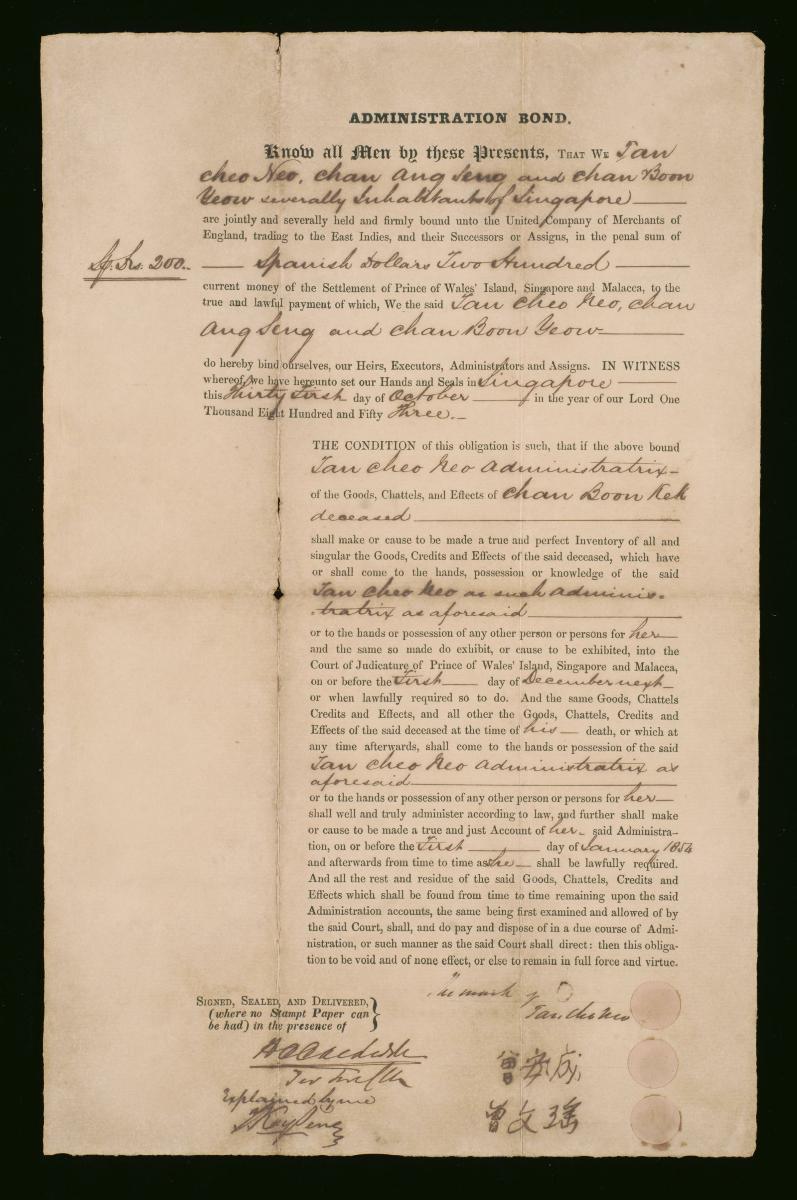 ADMINISTRATION BOND.
Know all Men by these Presents, THAT WE Tan
cheo Neo, chan Ang Seng and chan Boon
Yeow severally Inhabitants of Singapore
are jointly and severally held and firmly bound unto the United Company of Merchants of
England, trading to the East Indies, and their Successors or Assigns, in the penal sum of
Sp. Drs. 200..
Spanish Dollars Two Hundred
current money of the Settlement of Prince of Wales' Island, Singapore and Malacca, to the
true and lawful payment of which, We the said Tan Cheo Neo, chan
Ang Seng and chan Boon Yeow
do hereby bind ourselves, our Heirs, Executors, Administrators and Assigns. IN WITNESS
whereof, we have hereunto set our Hands and Seals in Singapore
this Thirty First day of October in the year of our Lord One
Thousand Eight Hundred and Fifty Three.
THE CONDITION of this obligation is such, that if the above bound
Tan cheo Neo Administratrix
of the Goods, Chattels, and Effects of Chan Boon Kek
deceased
shall make or cause to be made a true and perfect Inventory of all and
singular the Goods, Credits and Effects of the said deceased, which have
or shall come to the hands, possession or knowledge of the said
Tan Cheo Neo as such adminis-
-tratrix as aforesaid
or to the hands or possession of any other person or persons for her
and the same so made do exhibit, or cause to be exhibited, into the
Court of Judicature of Prince of Wales' Island, Singapore and Malacca,
on or before the First day of December next
or when lawfully required so to do. And the same Goods, Chattels
Credits and Effects, and all other the Goods, Chattels, Credits and
Effects of the said deceased at the time of his death, or which at
any time afterwards, shall come to the hands or possession of the said
Tan Cheo Neo Administratrix as
aforesaid
or to the hands or possession of any other person or persons for her
shall well and truly administer according to law, and further shall make
or cause to be made a true and just Account of her said Administra-
tion, on or before the First day of January 1854
and afterwards from time to time as she shall be lawfully required.
And all the rest and residue of the said Goods, Chattels, Credits and
Effects which shall be found from time to time remaining upon the said
Administration accounts, the same being first examined and allowed of by
the said Court, shall, and do pay and dispose of in a due course of Admi-
nistration, or such manner as the said Court shall direct: then this obliga-
tion to be void and of none effect, or else to remain in full force and virtue.
The mark of
Tan Cheo Neo
SIGNED, SEALED, AND DELIVERED,
(where no Stampt Paper can
be had) in the presence of
曾安成
Explained by me
曾文瑤